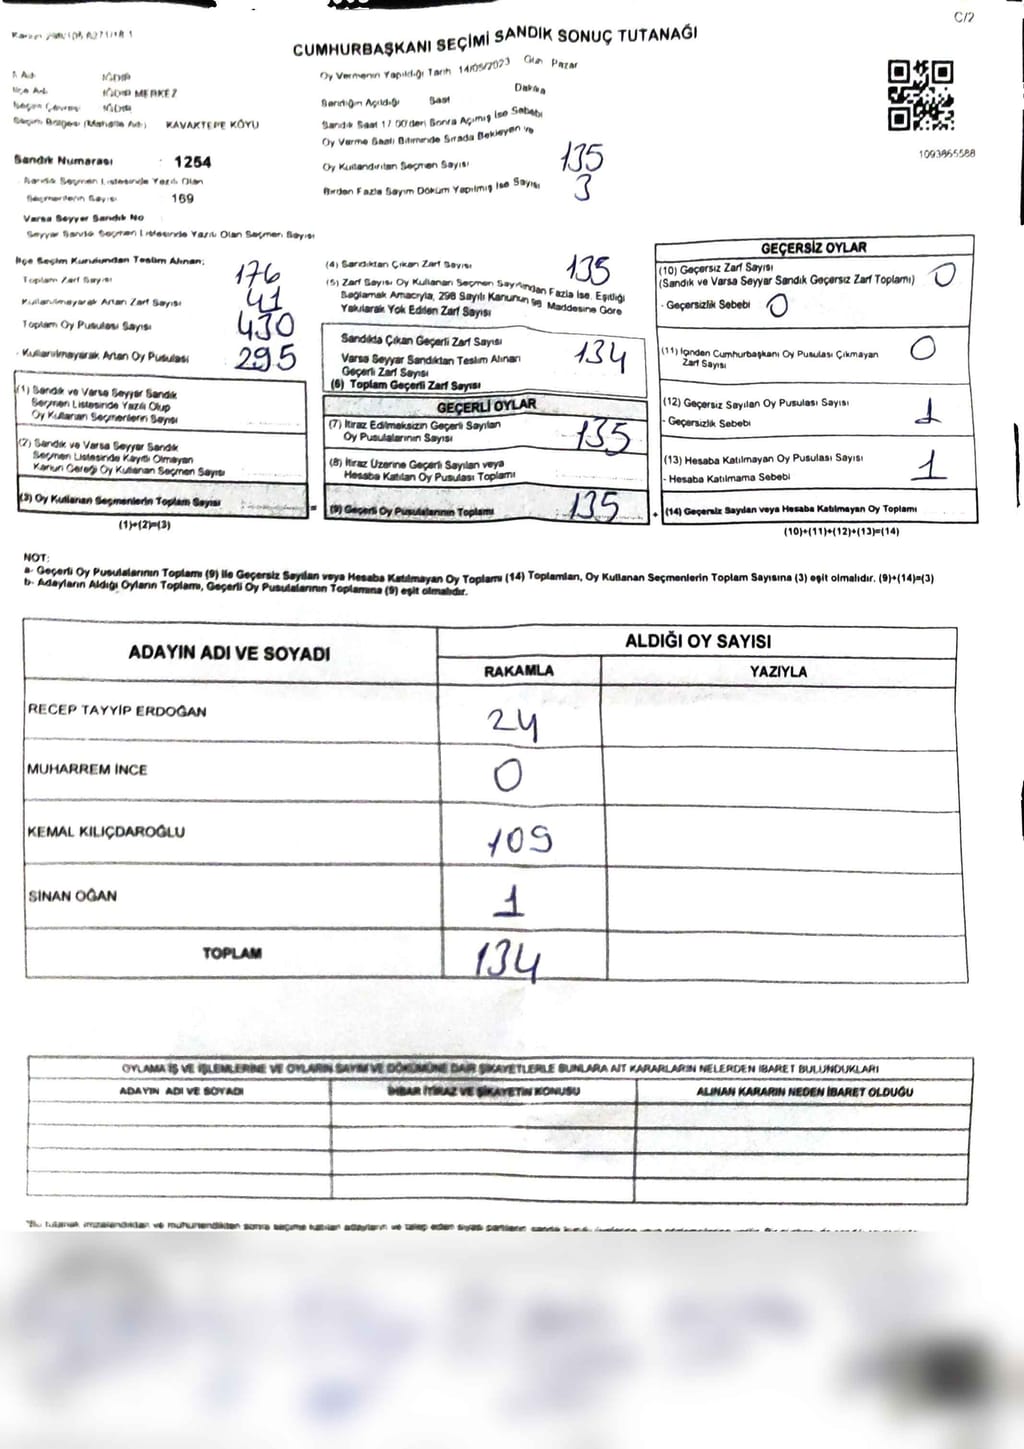 C/2
CUMHURBAŞKANI SEÇİMİ SANDIK SONUÇ TUTANAĞI
İl Adı IĞDIR
İlçe Adı IĞDIR MERKEZ
Seçim Çevresi IĞDIR
Seçim Bölgesi (Mahalle Adı) KAVAKTEPE KÖYÜ
Sandık Numarası : 1254
- Sandık Seçmen Listesinde Yazılı Olan
Seçmenlerin Sayısı 169
Varsa Seyyar Sandık No
Seyyar Sandık Seçmen Listesinde Yazılı Olan Seçmen Sayısı
Oy Vermenin Yapıldığı Tarih 14/05/2023 Gün Pazar
Sandığın Açıldığı Saat Dakika
Sandık Saat 17.00'den Sonra Açımış İse Sebebi
Oy Verme Saati Bitiminde Sırada Bekleyen ve
Oy Kullandırılan Seçmen Sayısı 135
Birden Fazla Sayım Döküm Yapılmış İse Sayısı 3
1093865588
İlçe Seçim Kurulundan Teslim Alınan;
Toplam Zarf Sayısı 176
Kullanılmayarak Artan Zarf Sayısı 41
Toplam Oy Pusulası Sayısı 430
- Kullanılmayarak Artan Oy Pusulası 295
(1) Sandık ve Varsa Seyyar Sandık
Seçmen Listesinde Yazılı Olup
Oy Kullanan Seçmenlerin Sayısı
(2) Sandık ve Varsa Seyyar Sandık
Seçmen Listesinde Kayıtlı Olmayan
Kanun Gereği Oy Kullanan Seçmen Sayısı
(3) Oy Kullanan Seçmenlerin Toplam Sayısı
(1)+(2)=(3)
(4) Sandıktan Çıkan Zarf Sayısı 135
(5) Zarf Sayısı Oy Kullanan Seçmen Sayısından Fazla İse, Eşitliği
Sağlamak Amacıyla, 298 Sayılı Kanunun 98. Maddesine Göre
Yakılarak Yok Edilen Zarf Sayısı
Sandıkta Çıkan Geçerli Zarf Sayısı
Varsa Seyyar Sandıktan Teslim Alınan 134
Geçerli Zarf Sayısı
(6) Toplam Geçerli Zarf Sayısı
GEÇERLİ OYLAR
(7) İtiraz Edilmeksizin Geçerli Sayılan
Oy Pusulalarının Sayısı 135
(8) İtiraz Üzerine Geçerli Sayılan veya
Hesaba Katılan Oy Pusulası Toplamı
= (9) Geçerli Oy Pusulalarının Toplamı 135
GEÇERSİZ OYLAR
(10) Geçersiz Zarf Sayısı
(Sandık ve Varsa Seyyar Sandık Geçersiz Zarf Toplamı) 0
- Geçersizlik Sebebi 0
(11) İçinden Cumhurbaşkanı Oy Pusulası Çıkmayan 0
Zarf Sayısı
(12) Geçersiz Sayılan Oy Pusulası Sayısı
- Geçersizlik Sebebi 1
(13) Hesaba Katılmayan Oy Pusulası Sayısı
- Hesaba Katılmama Sebebi 1
+ (14) Geçersiz Sayılan veya Hesaba Katılmayan Oy Toplamı
(10)+(11)+(12)+(13)=(14)
NOT:
a- Geçerli Oy Pusulalarının Toplamı (9) ile Geçersiz Sayılan veya Hesaba Katılmayan Oy Toplamı (14) Toplamları, Oy Kullanan Seçmenlerin Toplam Sayısına (3) eşit olmalıdır. (9)+(14)=(3)
b- Adayların Aldığı Oyların Toplamı, Geçerli Oy Pusulalarının Toplamına (9) eşit olmalıdır.
ADAYIN ADI VE SOYADI
ALDIĞI OY SAYISI
RAKAMLA YAZIYLA
RECEP TAYYİP ERDOĞAN 24
MUHARREM İNCE 0
KEMAL KILIÇDAROĞLU 109
SİNAN OĞAN 1
TOPLAM 134
OYLAMA İŞ VE İŞLEMLERİNE VE OYLARIN SAYIM VE DÖKÜMÜNE DAİR ŞİKAYETLERLE BUNLARA AİT KARARLARIN NELERDEN İBARET BULUNDUKLARI
ADAYIN ADI VE SOYADI İHBAR İTİRAZ VE ŞİKAYETİN KONUSU ALINAN KARARIN NEDEN İBARET OLDUĞU